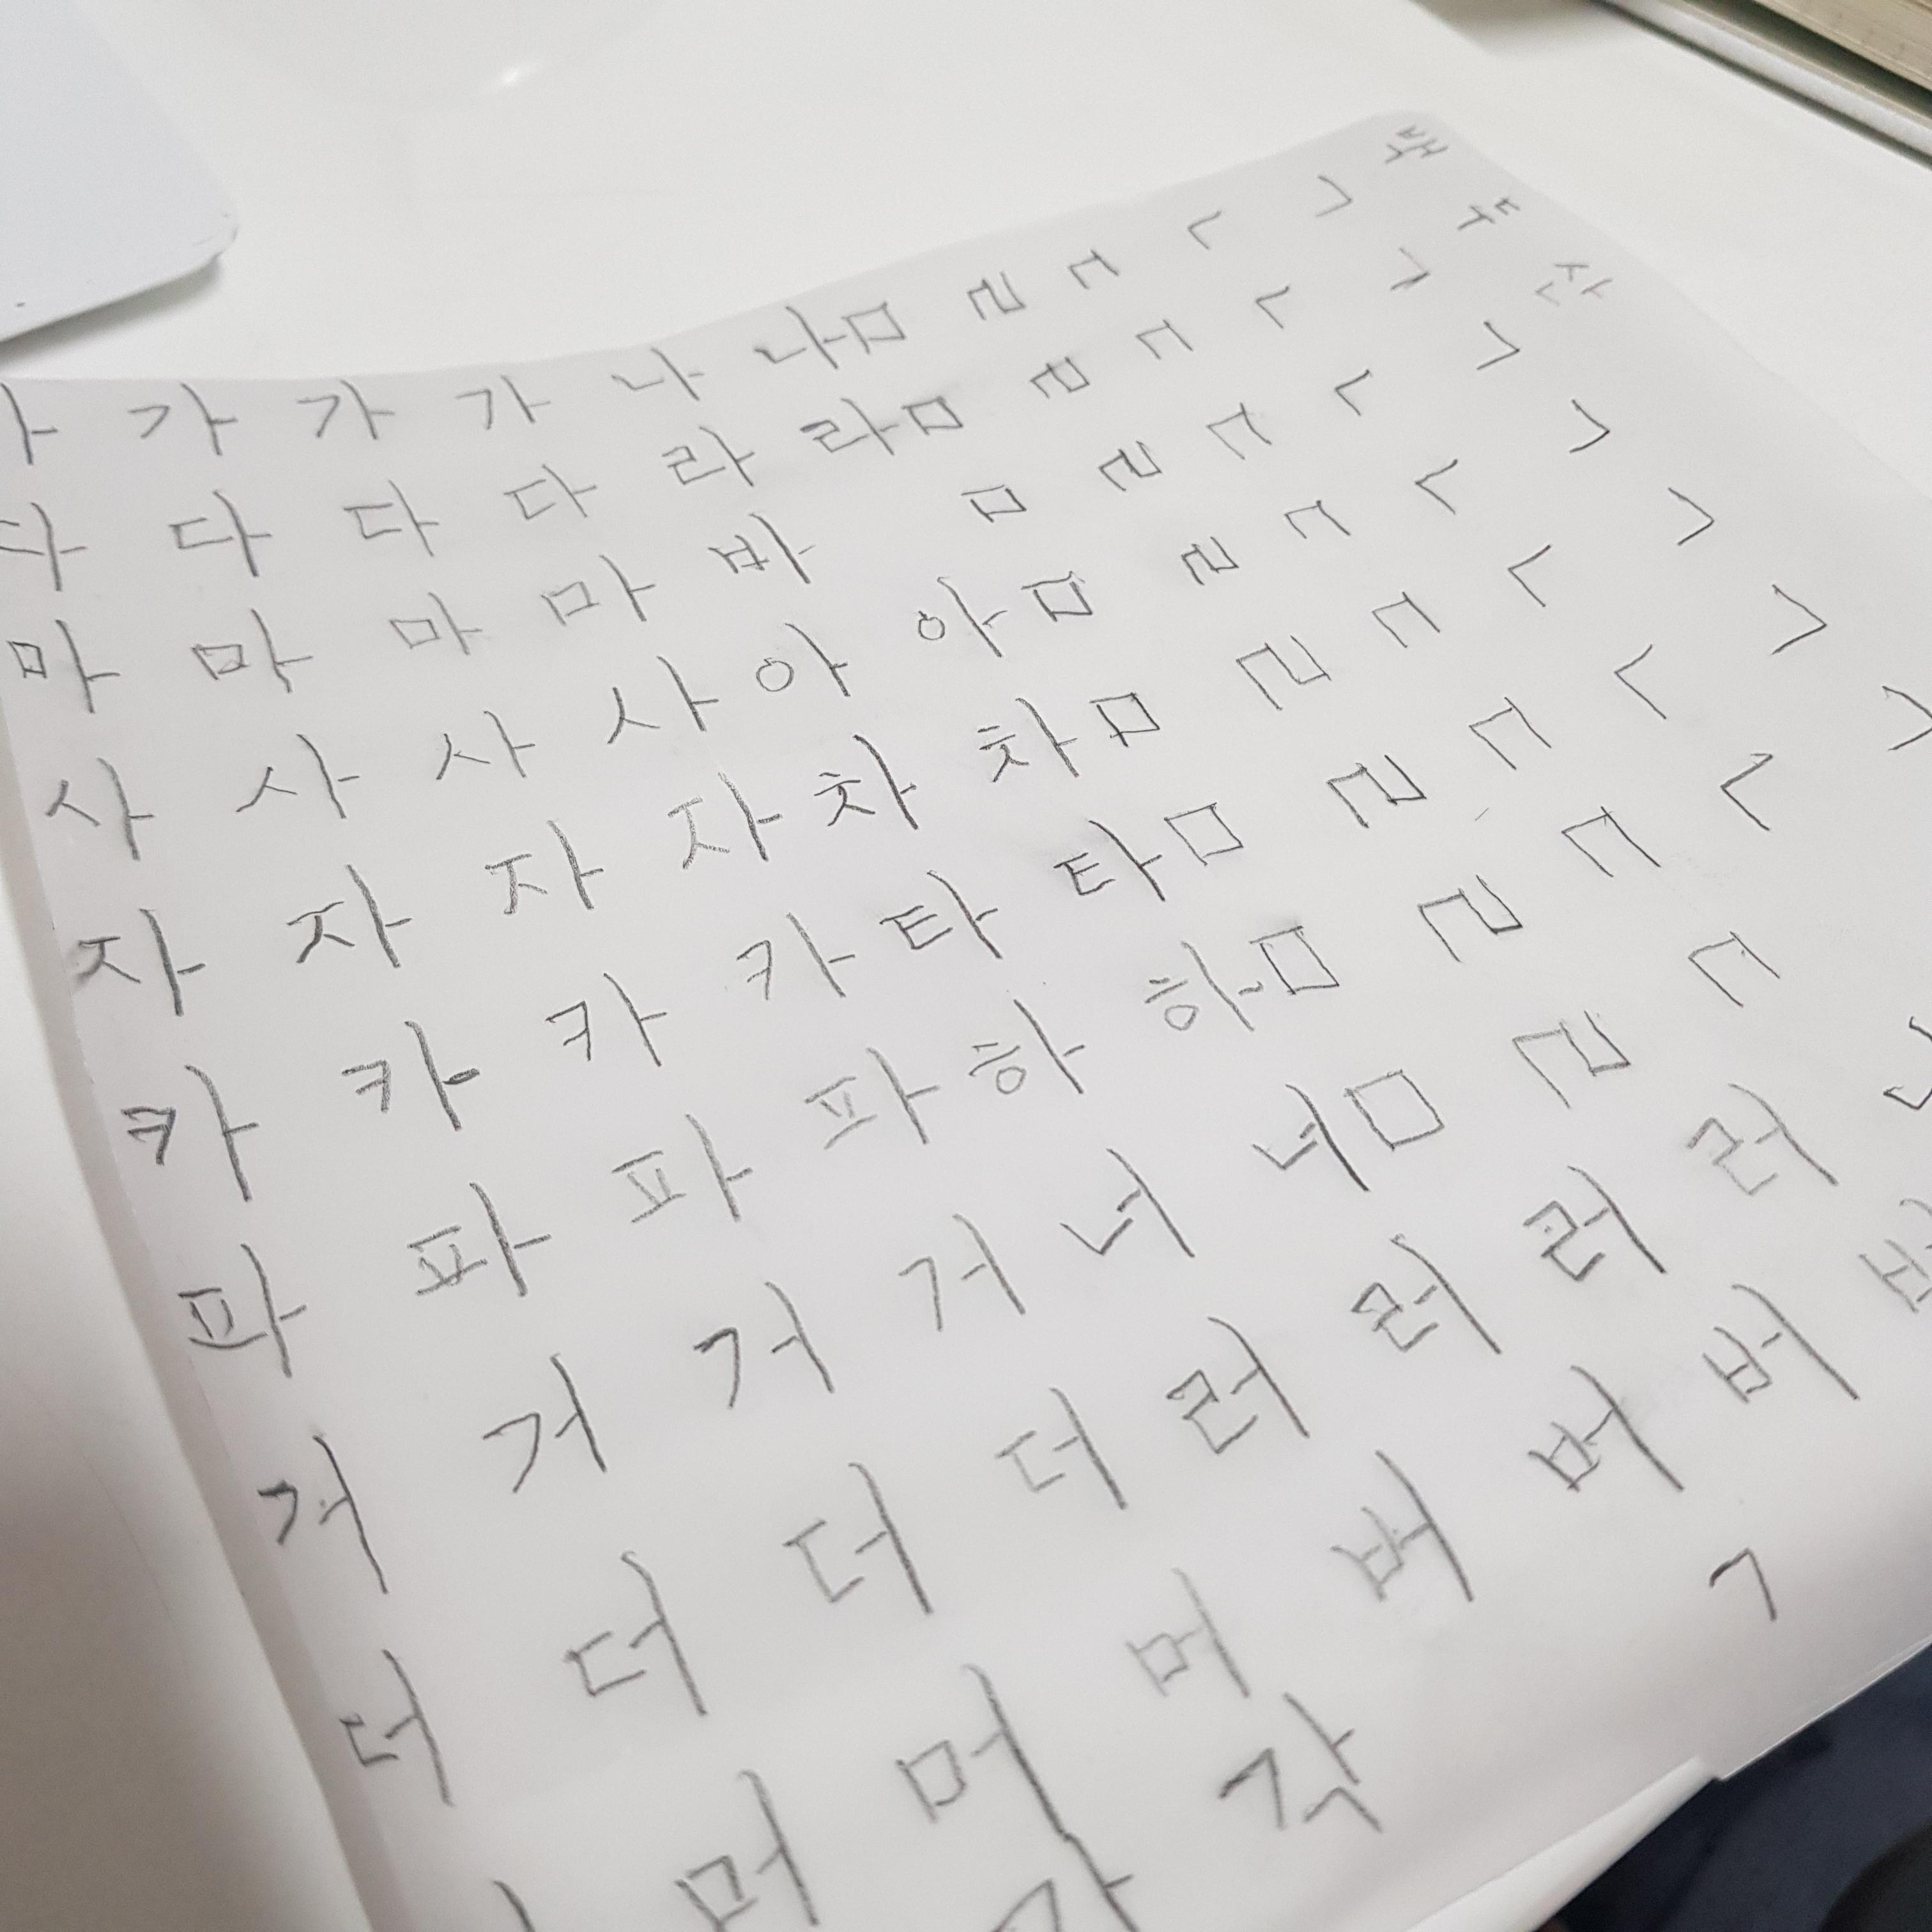 가 가 가 나 나 ㅁ ㄹ ㄷ ㄴ ㄱ
다 다 다 다 라 라 ㅁ ㄹ ㄷ ㄴ ㄱ
마 마 마 마 바 ㅁ ㄹ ㄷ ㄴ ㄱ
사 사 사 사 아 아 ㅁ ㄹ ㄷ ㄴ ㄱ
자 자 자 자 차 차 ㅁ ㄹ ㄷ ㄴ ㄱ
카 카 카 카 타 타 ㅁ ㄹ ㄷ ㄴ ㄱ
파 파 파 파 하 하 ㅁ ㄹ ㄷ ㄴ ㄱ
거 거 거 거 너 너 ㅁ ㄹ ㄷ
더 더 더 더 러 러 러 러
머 머 머 버 버 버
각 ㄱ